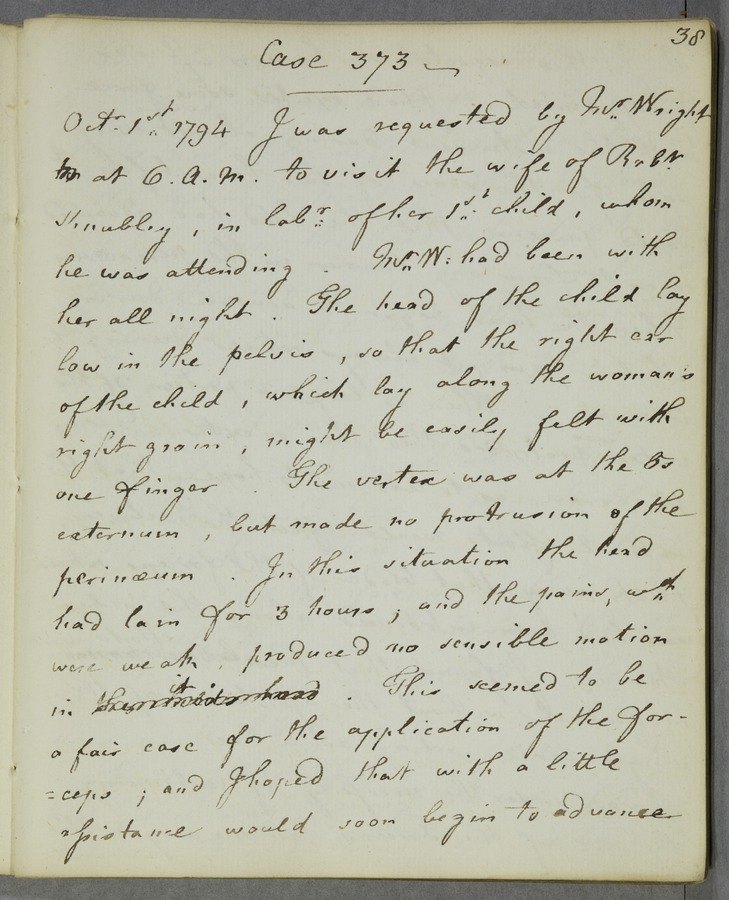 38
Case 373
Octr. 1st 1794 I was requested by Mr. Wright
at 6. A.M. to visit the wife of Robt.
Snubley, in labr. of her 1st. child, whom
he was attending. Mr. W: had been with
her all night. The head of the child lay
low in the pelvis, so that the right ear
of the child, which lay along the woman's
right groin, might be easily felt with
one finger. The vertex was at the Os
externum, but made no protrusion of the
perinæum. In this situation the head
had lain for 3 hours; and the pains, wch.
were weak, produced no sensible motion
in it. This seemed to be
a fair case for the application of the for-
=ceps; and I hoped that with a little
assistance would soon begin to advance